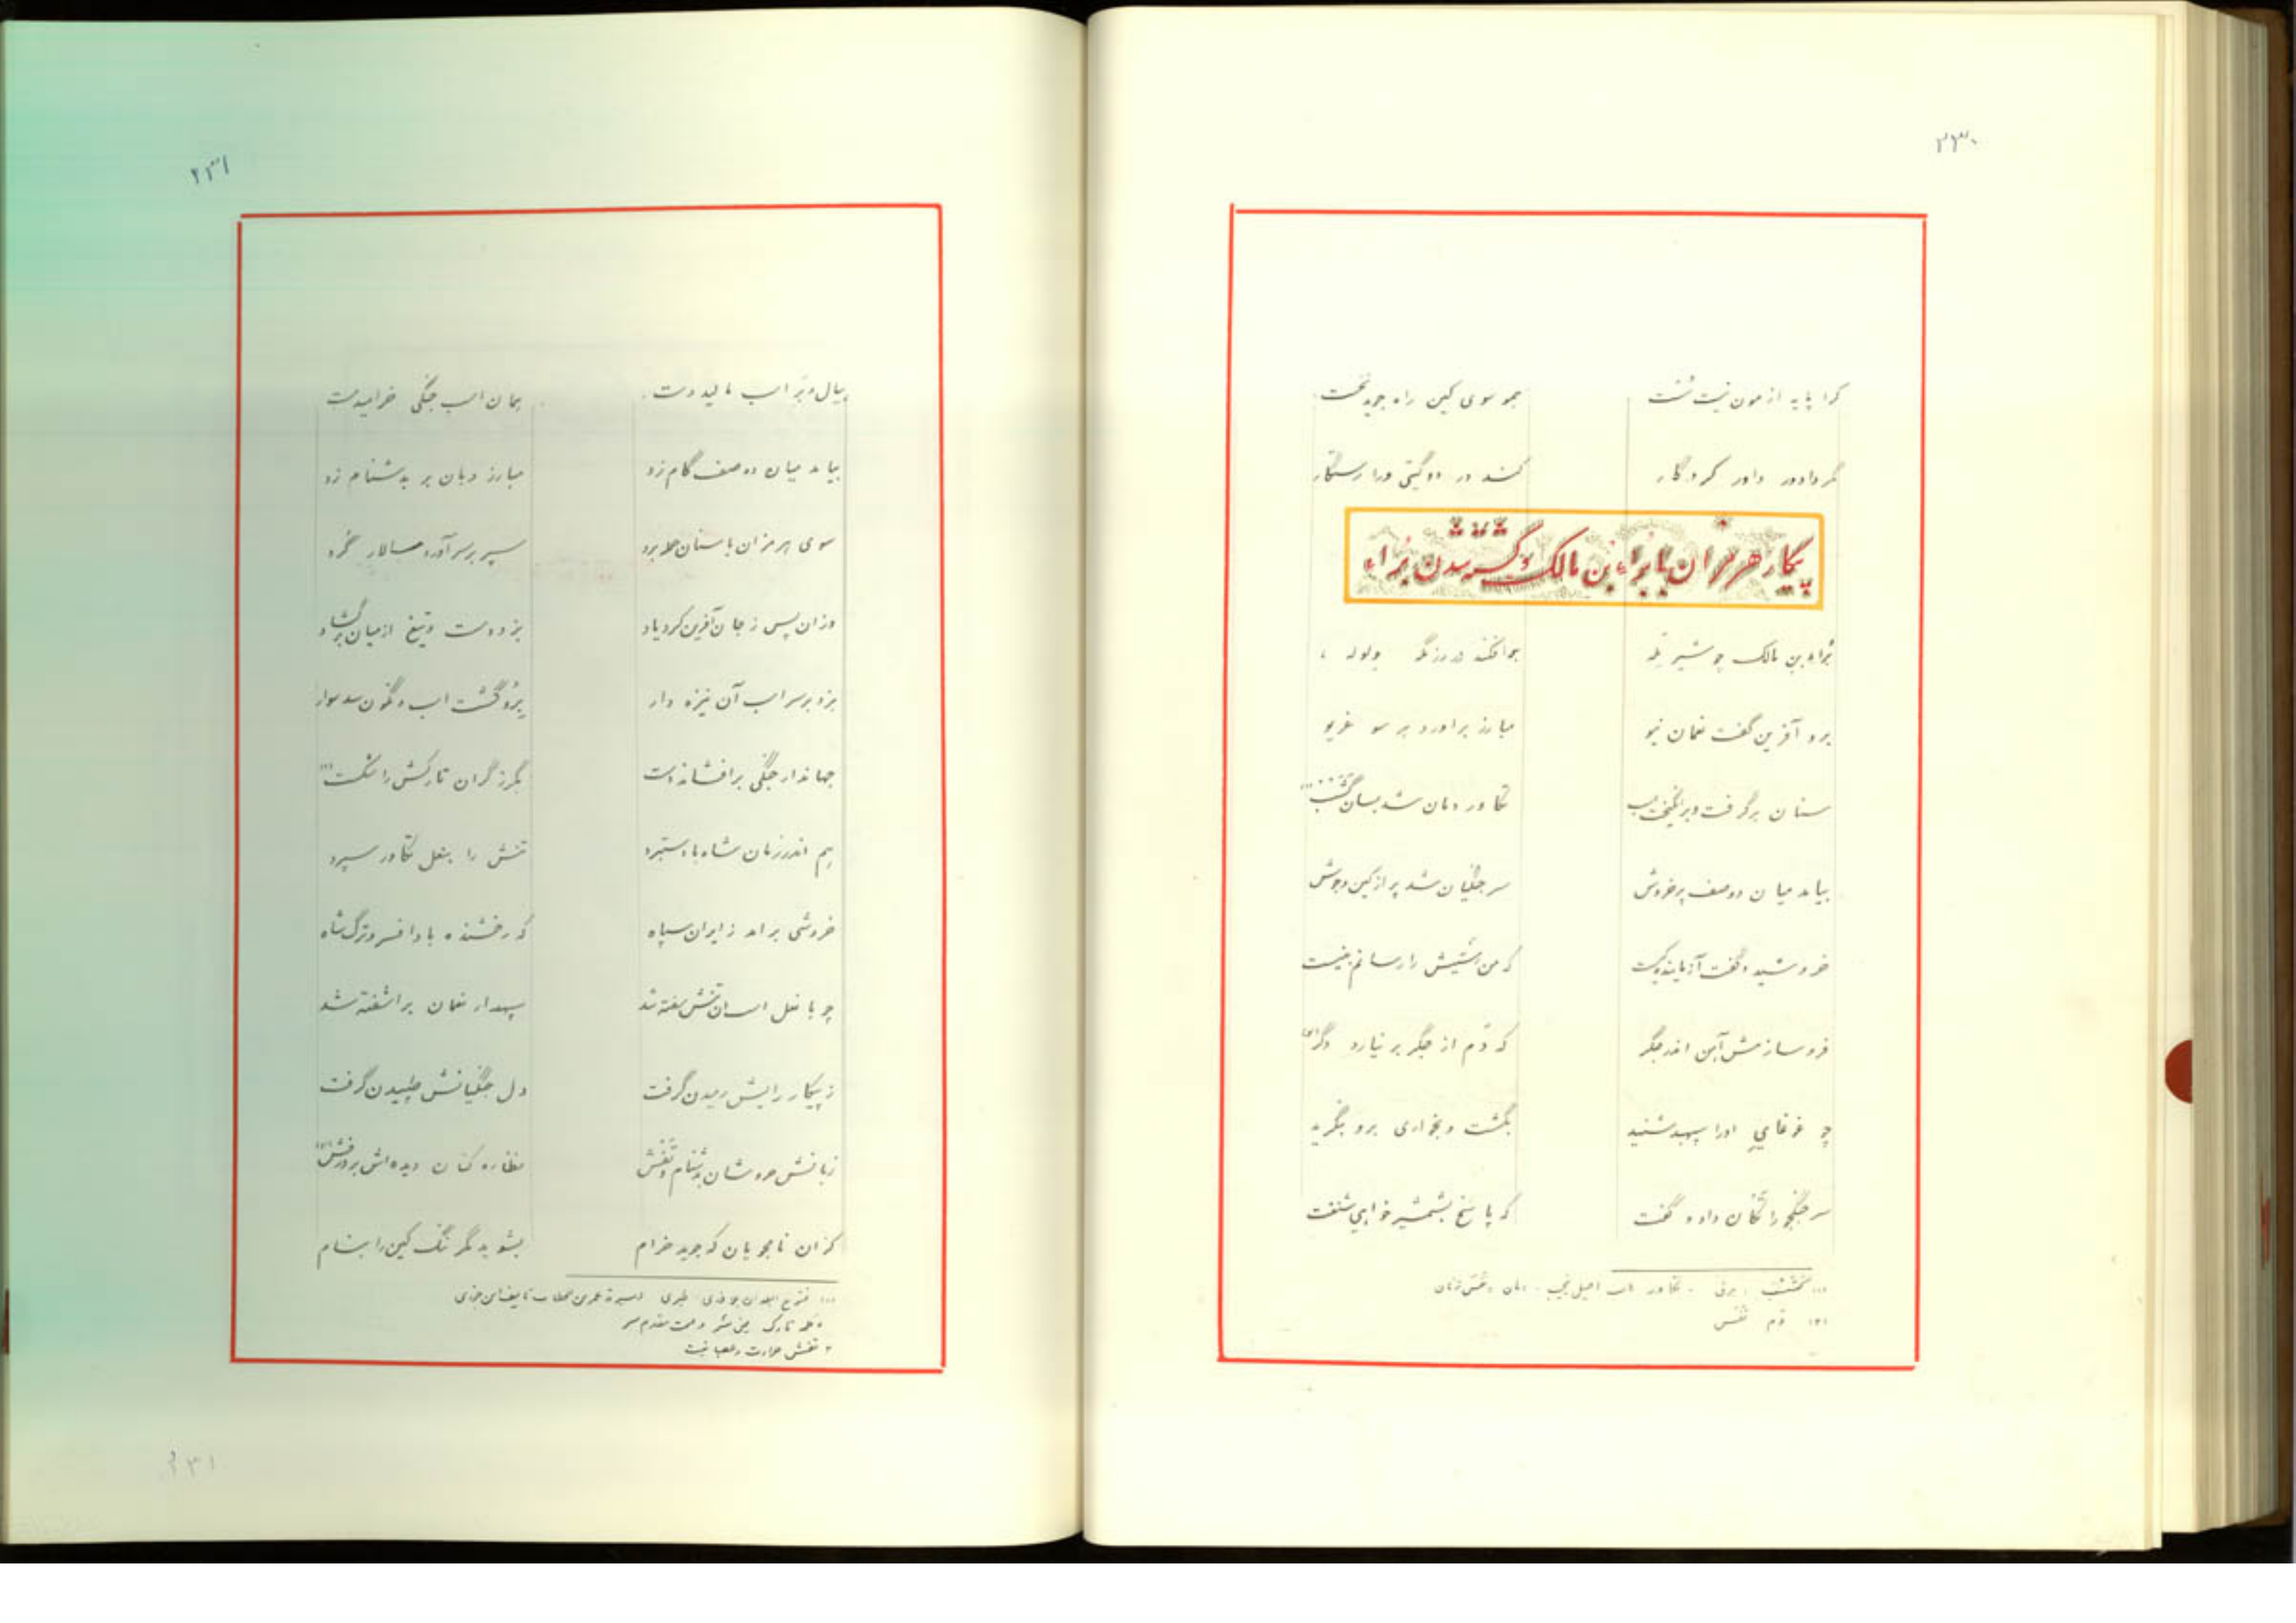 ۲۳۰
کرا پایه از مون نیست سست همو سوی کین راه جوید نخست
مگر دادور داور کردگار کند در دو گیتی ورا رستگار
پیکار هرمزان با براء بن مالک و کشته شدن براء
براء بن مالک چو شیر یله بیافکند در رزمگه ولوله
برو آفرین گفت نعمان نیو مبارز برآورد بر سو غریو
سنان برگرفت و برانگیخت اسب تکاور دمان شد بسان گشسب (۱)
بیامد میان دو صف پرخروش سر جنگیان شد پر از کین و جوش
خروشید و گفت آزماینده کیست که من هستیش را رسانم به نیست
فرو سازمش آهن اندر جگر که دم از جگر بر نیارد دگر (۲)
چو غوغای او را سپهبد شنید بگشت و بخواری برو بنگرید
سر جنگجو را تکان داد و گفت که پاسخ بشمشیر خواهی شنفت
(۱) گشسب : برق - تکاور اسب اصیل نجیب - دمان
(۲) دم نفس
۲۳۱
بیال و بر اسب مالید دست همان اسب جنگی خرامید مست
بیامد میان دو صف گام زد مبارز دهان بر به دشنام زد
سوی هرمزان با سنان حمله برد سپر بر سر آورد سالار گرد
وزان پس ز جان آفرین کرد یاد بزد دست و تیغ از میان برگشاد
بزد بر سر اسب آن نیزه دار برو گشت اسب و نگون شد سوار
جهاندار جنگی برافشاند دست بگرز گران تارکش را شکست (۱)
هم اندر زمان شاه با دستبرد تنش را بنعل تکاور سپرد
خروشی برآمد ز ایران سپاه که رخشنده باد افسر و ترگ شاه
چو با نعل اسبان تنش سفته شد سپهدار نعمان برآشفته شد
ز پیکار رایش رمیدن گرفت دل جنگیانش طپیدن گرفت
زبانش خروشان بدشنام و تفش نظاره کنان دیده اش بر درفش (۲)
کزان نامجویان که جوید خرام بشوید مگر ننگ کین را بنام
(۱) فتوح البلدان بلاذری طبری سیرة عمر بن خطاب تالیف ابن جوزی
کله تارک
۲ تفش حرارت و عصبانیت
۲۳۱